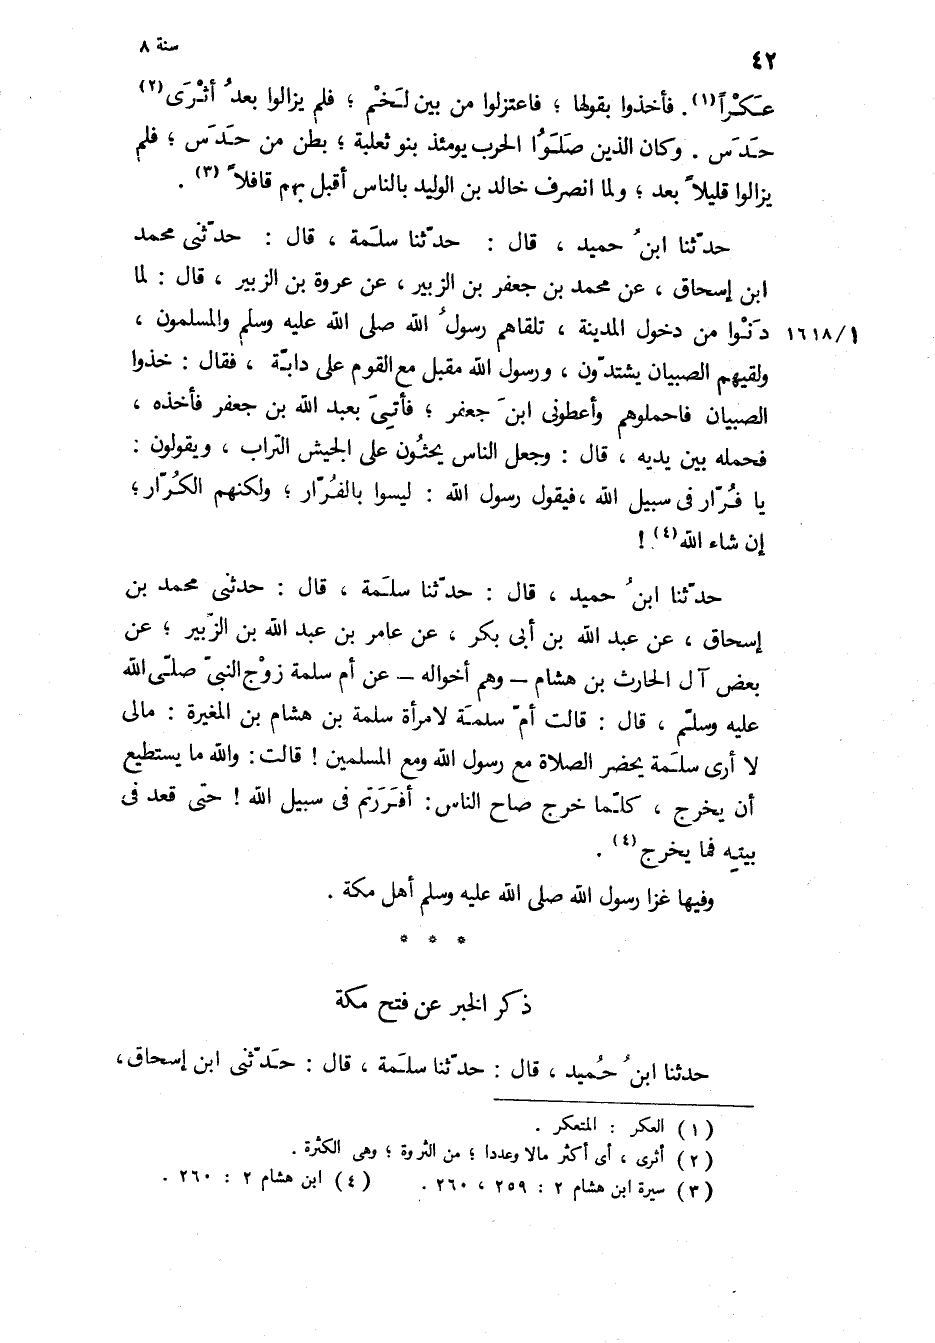 ٤٢
سنة ٨
عَكْراً(١). فأخذوا بقولها ؛ فاعتزلوا من بين لَخْم ؛ فلم يزالوا بعدُ أثْرَى(٢)
حَدَس . وكان الذين صَلَوُا الحرب يومئذ بنو ثعلبة ؛ بطن من حَدَس ؛ فلم
يزالوا قليلاً بعد ؛ ولما انصرف خالد بن الوليد بالناس أقبل بهم قافلاً (٣) .
حدّثنا ابنُ حميد ، قال : حدّثنا سلَمة ، قال : حدّثنى محمد
ابن إسحاق ، عن محمد بن جعفر بن الزبير ، عن عروة بن الزبير ، قال : لما
دَنَوْا من دخول المدينة ، تلقاهم رسولُ الله صلى الله عليه وسلم والمسلمون ، ١٦١٨/١
ولقيهم الصبيان يشتدّون ، ورسول الله مقبل مع القوم على دابّة ، فقال : خذوا
الصبيان فاحملوهم وأعطونى ابنَ جعفر ؛ فأتِىَ بعبد الله بن جعفر فأخذه ،
فحمله بين يديه ، قال : وجعل الناس يحثُون على الجيش التراب ، ويقولون :
يا فُرّار فى سبيل الله ، فيقول رسول الله : ليسوا بالفُرّار ؛ ولكنهم الكُرّار ؛
إن شاء الله(٤) !
حدّثنا ابنُ حميد ، قال : حدّثنا سلَمة ، قال : حدثنى محمد بن
إسحاق ، عن عبد الله بن أبى بكر ، عن عامر بن عبد الله بن الزّبير ؛ عن
بعض آل الحارث بن هشام – وهم أخواله – عن أم سلمة زوْج النبىّ صلّى الله
عليه وسلّم ، قال : قالت أمّ سلمَة لامرأة سلمة بن هشام بن المغيرة : مالى
لا أرى سلَمة يحضر الصلاة مع رسول الله ومع المسلمين ! قالت : والله ما يستطيع
أن يخرج ، كلّما خرج صاح الناس : أفَرَرتم فى سبيل الله ! حتى قعد فى
بيتِه فما يخرج(٤) .
وفيها غزا رسول الله صلى الله عليه وسلم أهل مكة .
* * *
ذكر الخبر عن فتح مكة
حدثنا ابنُ حُميد ، قال : حدّثنا سلَمة ، قال : حَدّثنى ابن إسحاق ،
(١) العكر : المتعكر .
(٢) أثرى ، أى أكثر مالا وعددا ؛ من الثروة ؛ وهى الكثرة .
(٣) سيرة ابن هشام ٢ : ٢٥٩ ، ٢٦٠ . (٤) ابن هشام ٢ : ٢٦٠ .